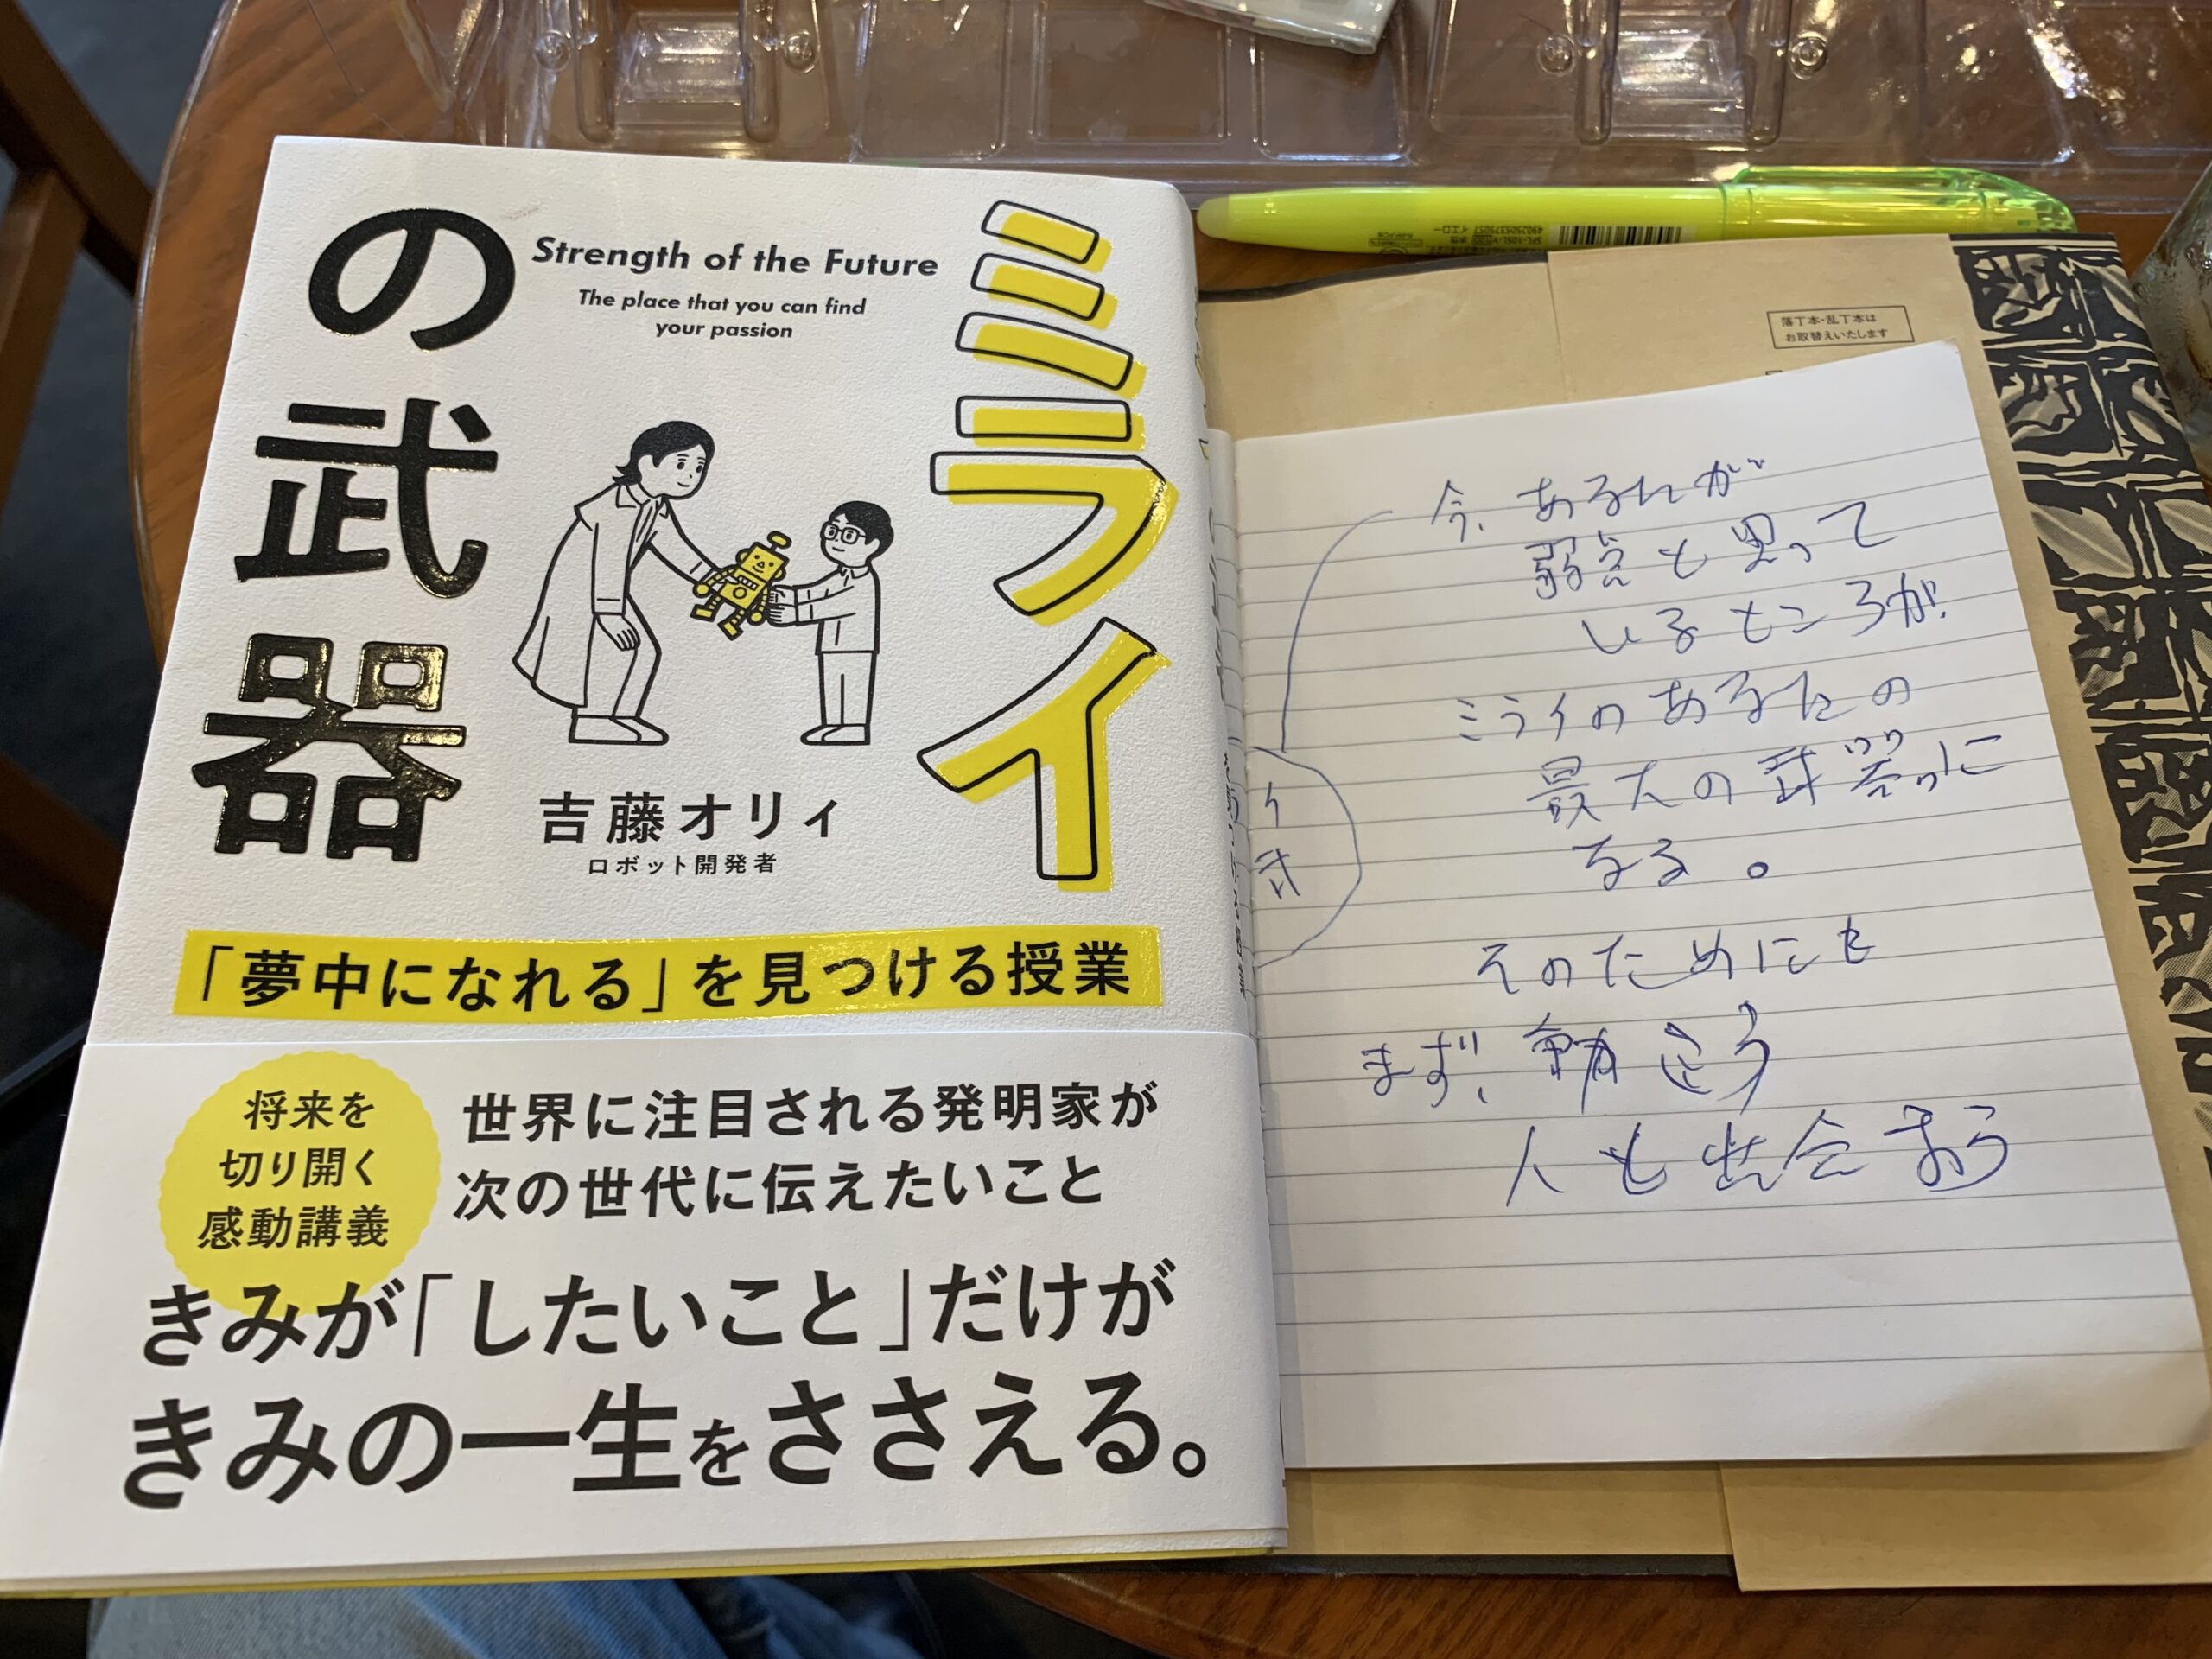 ミライ
の武器
Strength of the Future
The place that you can find
your passion
吉藤オリィ
ロボット開発者
「夢中になれる」を見つける授業
将来を
切り開く
感動講義
世界に注目される発明家が
次の世代に伝えたいこと
きみが「したいこと」だけが
きみの一生をささえる。
イエロー
4902505375057
落丁本・乱丁本は
お取替えいたします
今、あなたが
弱点と思って
いるところが、
ミライのあなたの
最大の武器に
なる。
そのためにも
まず、
人と出会おう